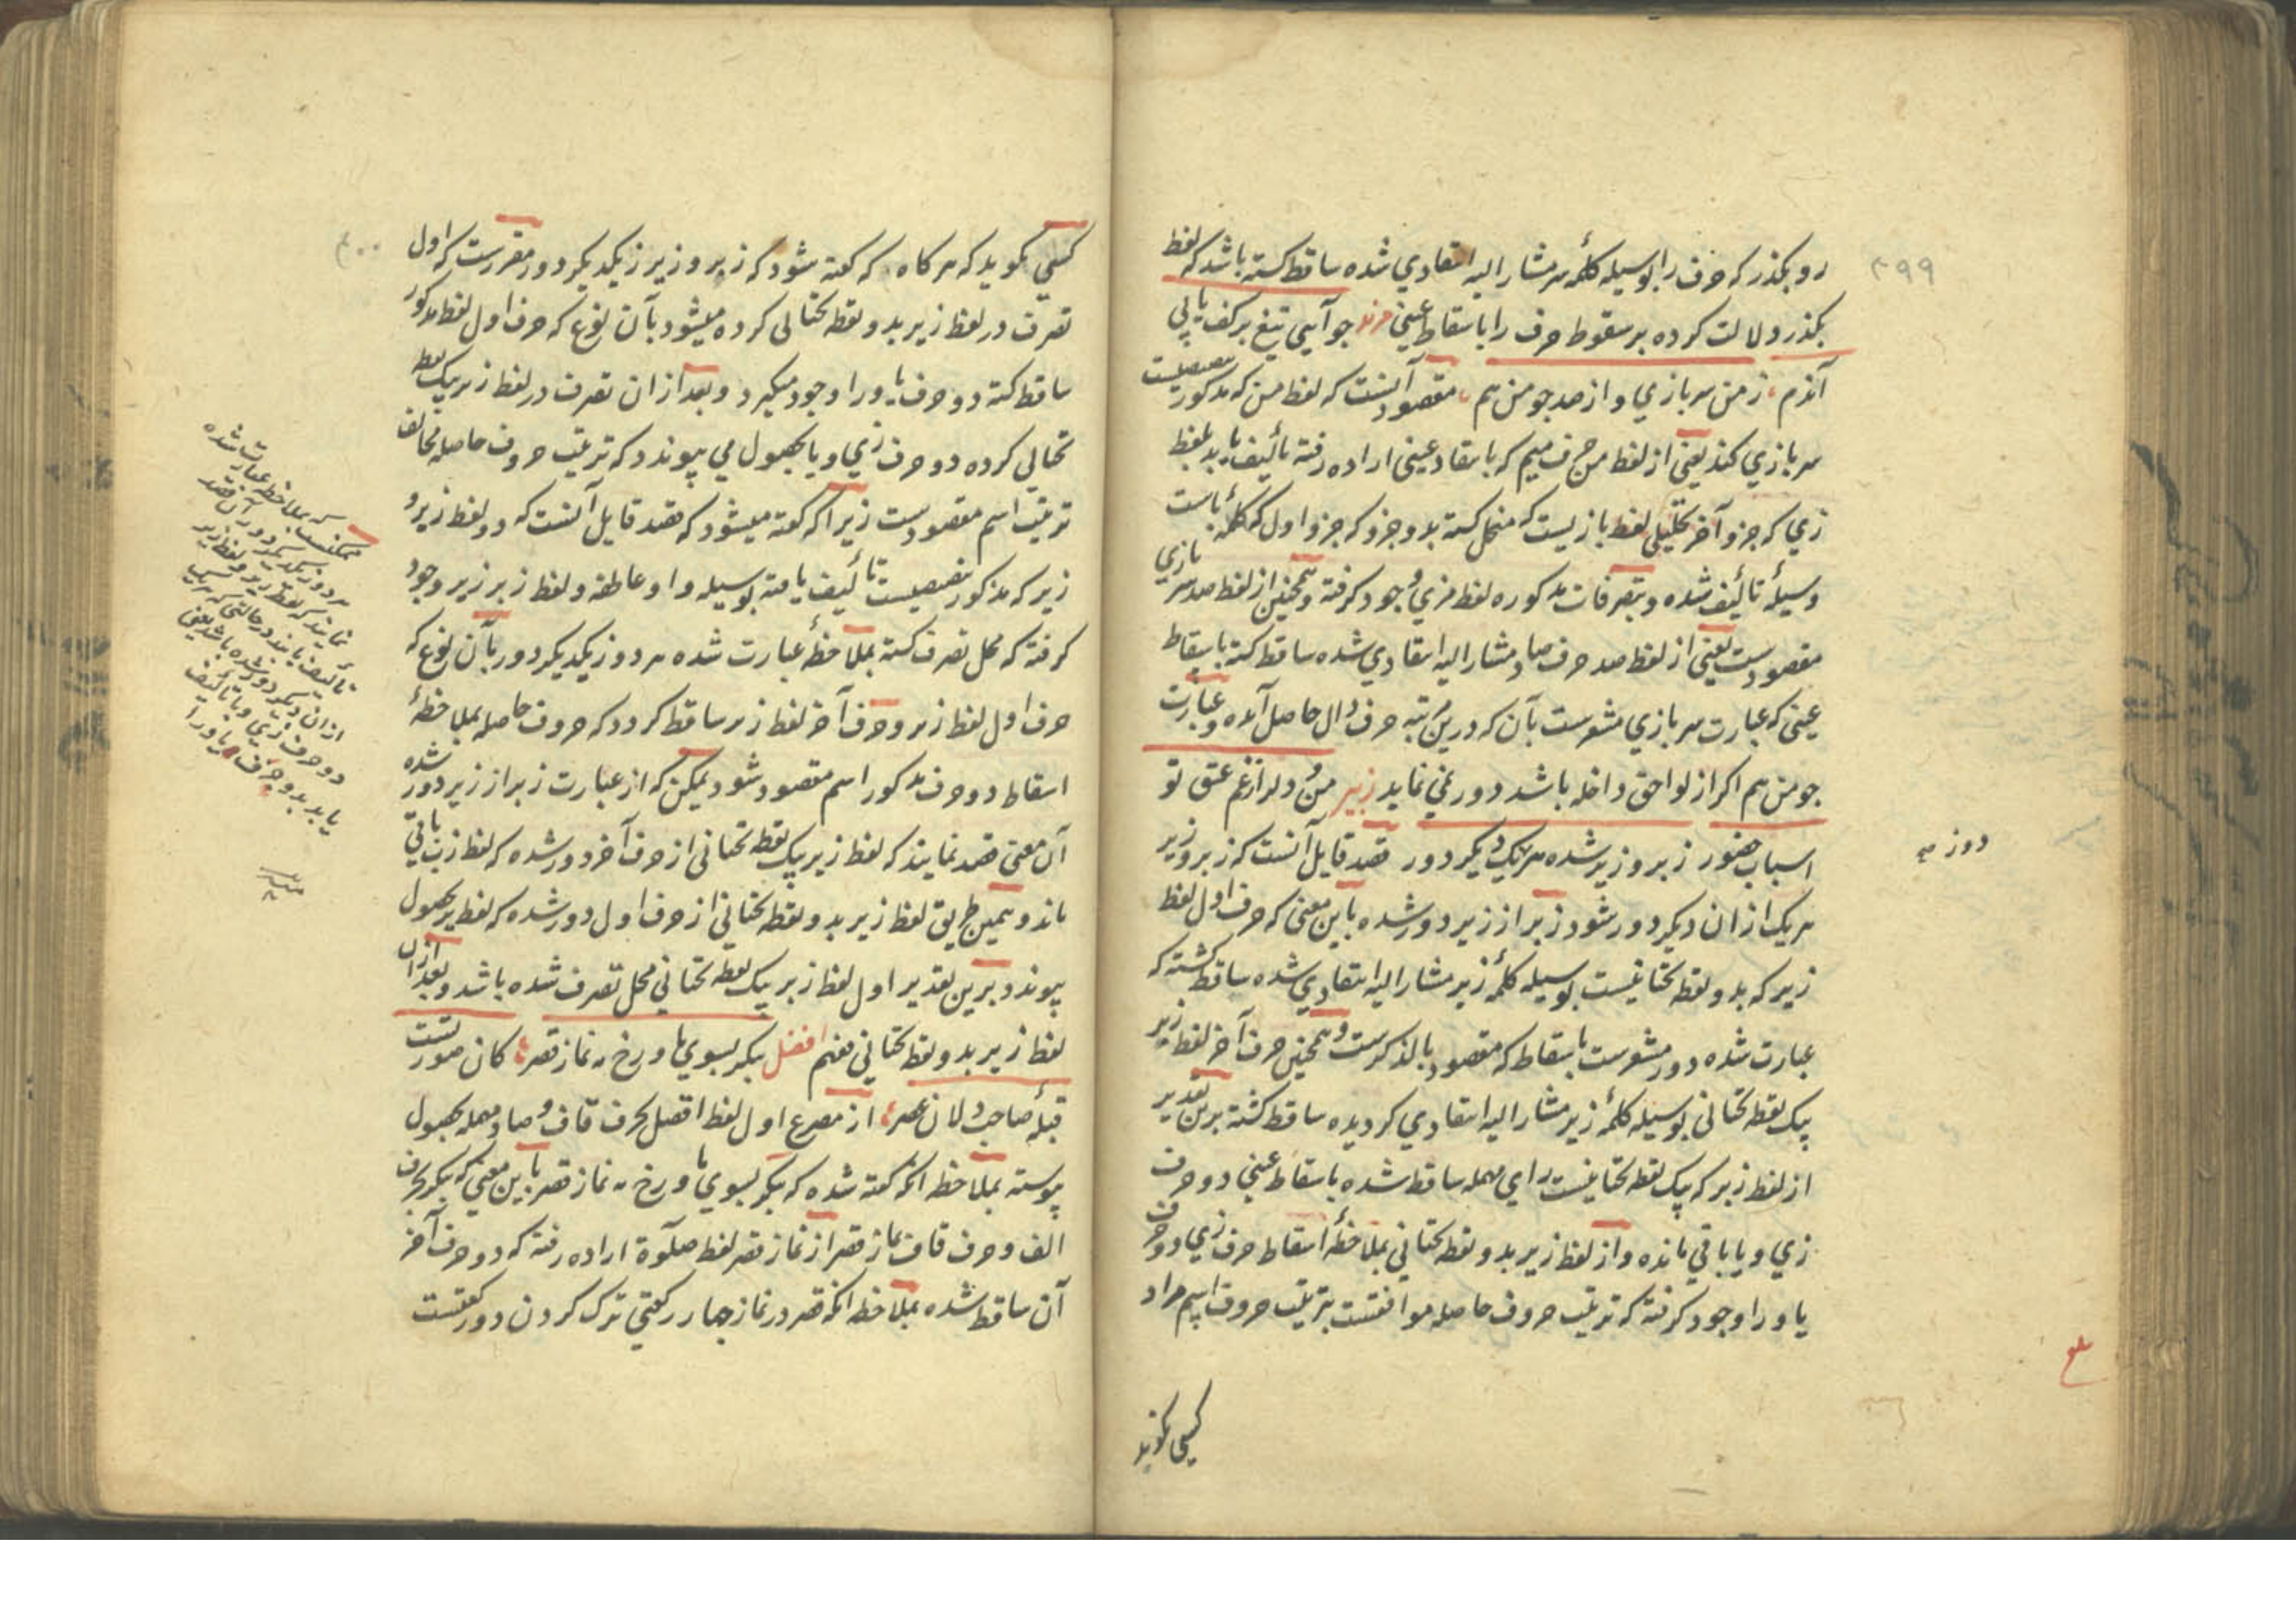 ۳۹۹
رو بگذر که حرف را بوسیله کلمهٔ سر مشار الیه انتقادي شده ساقط گشته باشد که لفظ
بگذر دلالت کرده بر سقوط حرف را باسقاط عینی مزید جو آیی تیغ بر کف یا پی
آندم ز من سر بازي و از صد جو من هم مقصود آنست که لفظ من که مذکور
سر بازي کند یعنی از لفظ من حرف میم که بانتقاد عینی اراده رفته تألیف یابد بلفظ
زي که جزو آخر تحلیلي لفظ بازیست که منحل گشته بدو جزو که جزو اول که کلمهٔ باست
وسیلهٔ تألیف شده و بتصرفات مذکوره لفظ مزي وجود گرفته و همچنین از لفظ صد سر بازي
مقصودست یعنی از لفظ صد حرف صاد مشار الیه انتقادي شده ساقط گشته باسقاط
عینی که عبارت سر بازي مشعرست بآن که درین مرتبه حرف دال حاصل آمده و عبارت
جو من هم اگر از لواحق داخله باشد دور نمی نماید زبیر من و دلدار غم عشق تو
اسباب حضور زبر و زیر شده هر یک ز دیگر دور قصد قایل آنست که زبر و زیر
هر یک از ان دیگر دور شود زبر از زیر دور شده باین معنی که حرف اول لفظ
زیر که بدو نقطه تحتانیست بوسیله کلمهٔ زبر مشار الیه انتقادي شده ساقط گشته که
عبارت شده دور مشعرست باسقاط که مقصود بالذکرست و همچنین حرف آخر لفظ زبر
بیک نقطه تحتانی بوسیله کلمهٔ زیر مشار الیه انتقادي گردیده ساقط گشته برین تقدیر
از لفظ زبر که بیک نقطه تحتانیست راي مهمله ساقط شده باسقاط عینی دو حرف
زي و با باقي مانده و از لفظ زیر بدو نقطه تحتانی بملاحظهٔ اسقاط حرف زي دو حرف
یا و را وجود گرفته که ترتیب حروف حاصله موافقست بترتیب حروف اسم مراد
کسی گوید
۴۰۰
کسي گوید که هر گاه که گفته شود که زبر و زیر ز یکدیگر دور مقررست که اول
تصرف در لفظ زیر بدو نقطه تحتانی کرده میشود بآن نوع که حرف اول لفظ مذکور
ساقط گشته دو حرف یا و را وجود میگیرد و بعد از ان تصرف در لفظ زبر بیک نقطه
تحتانی کرده دو حرف زي و با بحصول می پیوندد که ترتیب حروف حاصله مخالف
ترتیب اسم مقصودست زیرا که گفته میشود که قصد قایل آنست که دو لفظ زبر و
زیر که مذکور بتنصیصیست تألیف یافته بوسیله واو عاطفه و لفظ زبر زیر وجود
گرفته که محل تصرف گشته بملاحظهٔ عبارت شده هر دو ز یکدیگر دور بآن نوع که
حرف اول لفظ زیر و حرف آخر لفظ زبر ساقط گردد که حروف حاصله بملاحظهٔ
اسقاط دو حرف مذکور اسم مقصود شود یمکن که از عبارت زبر از زیر دور شده
آن معنی قصد نمایند که لفظ زبر بیک نقطه تحتانی از حرف آخر دور شده که لفظ زب باقی
ماند و بهمین طریق لفظ زیر بدو نقطه تحتانی از حرف اول دور شده که لفظ یر بحصول
پیوند و برین تقدیر اول لفظ زبر بیک نقطه تحتانی محل تصرف شده باشد و بعد از ان
لفظ زیر بدو نقطه تحتانی فهم افضل بگیر بسوي ما و رخ نه نماز قصر کان صورتست
قبلهٔ صاحب دلان عصر از مصرع اول لفظ افضل بحرف قاف و صاد مهمله بحصول
پیوسته بملاحظه آنکه گفته شده که بگیر بسوي ما و رخ نه نماز قصر باین معنی که بگیر حرف
الف و حرف قاف نماز قصر از نماز قصر لفظ صلوة اراده رفته که دو حرف آخر
آن ساقط شده بملاحظه آنکه قصر در نماز چهار رکعتی ترک کردن دو رکعتست